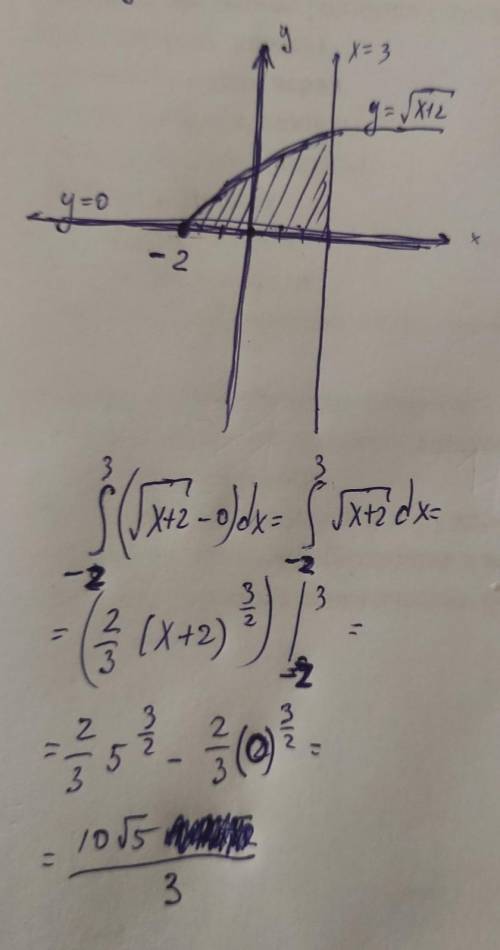 y
x=3
y=√(x+2)
y=0
x
-2
∫_{-2}^{3} (√(x+2) - 0) dx = ∫_{-2}^{3} √(x+2) dx =
= (2/3 (x+2)^{3/2}) |_{-2}^{3} =
= 2/3 5^{3/2} - 2/3 (0)^{3/2} =
= 10√5 / 3